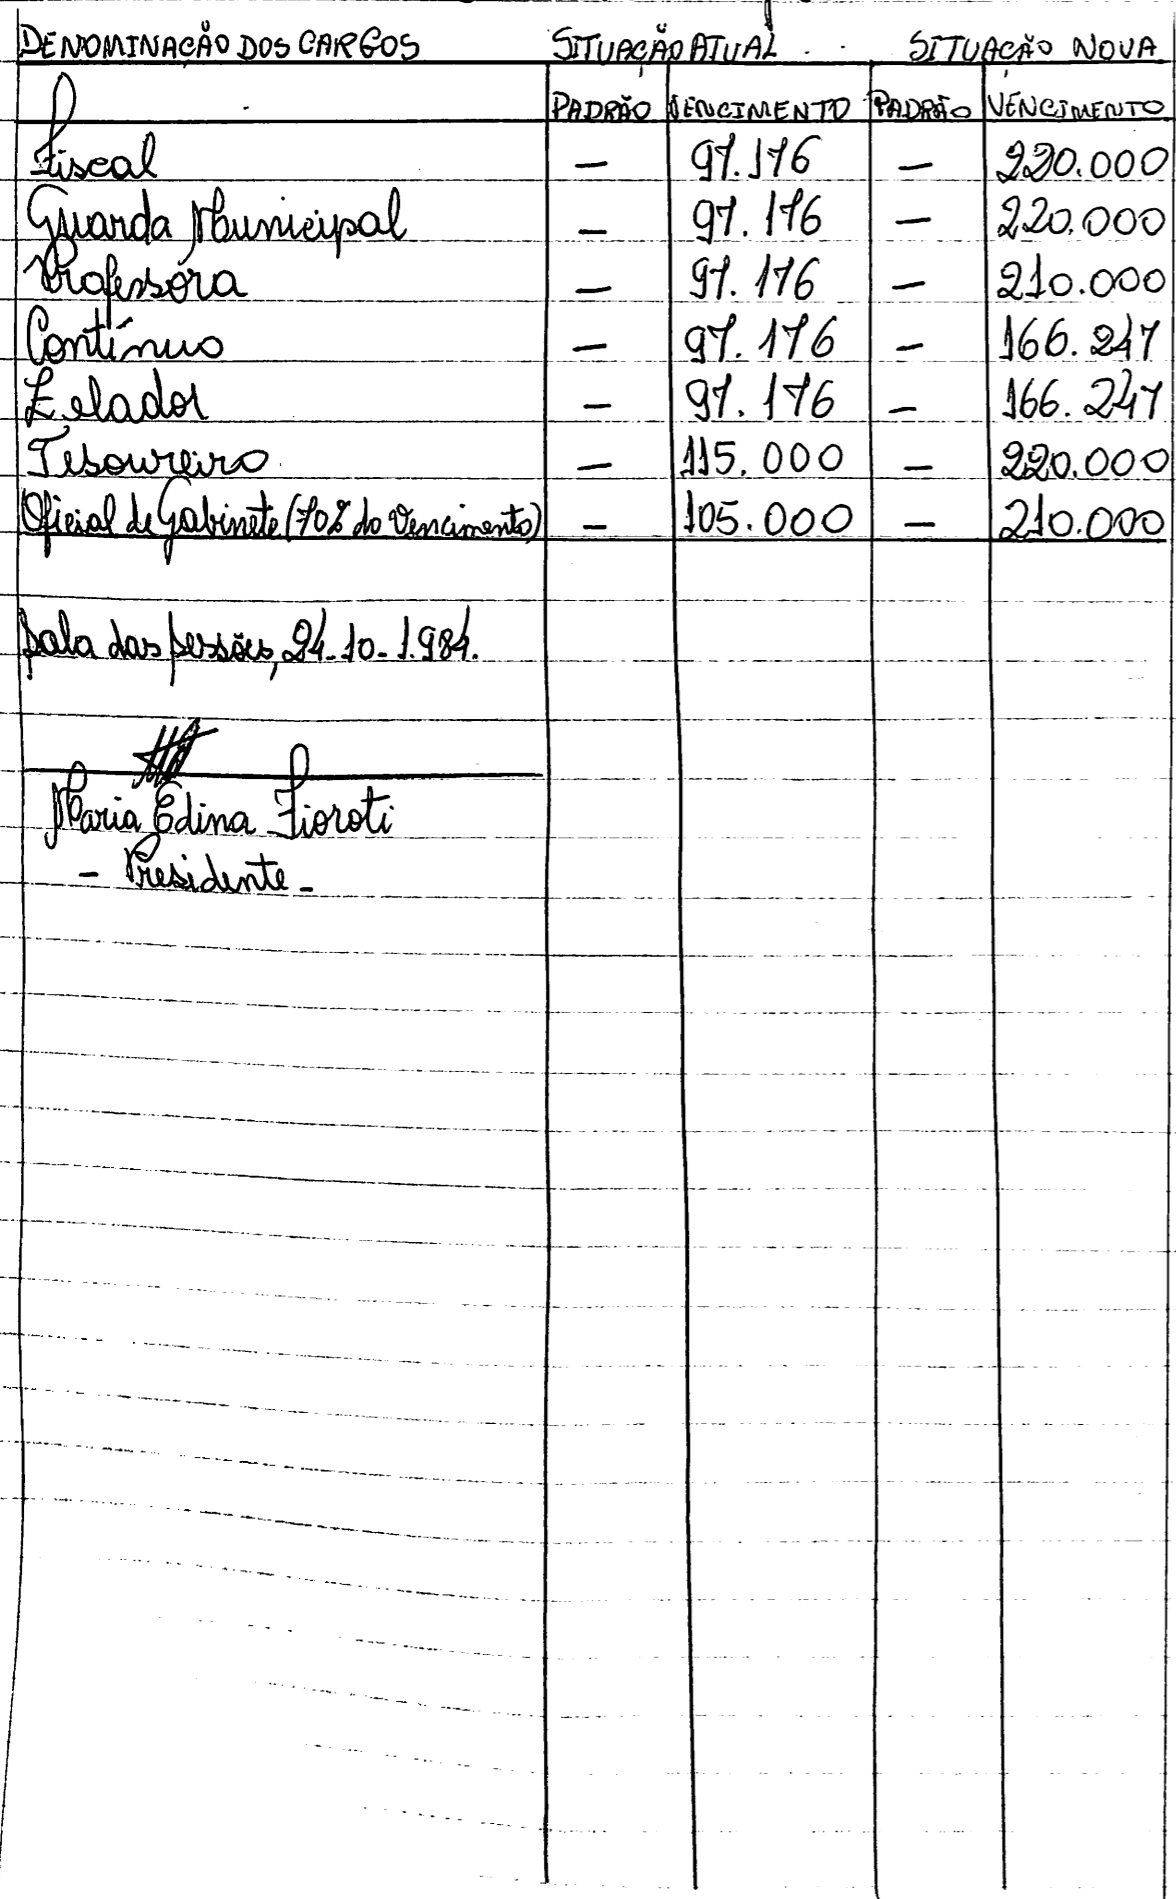 DENOMINAÇÃO DOS CARGOS SITUAÇÃO ATUAL SITUAÇÃO NOVA
PADRÃO VENCIMENTO PADRÃO VENCIMENTO
Fiscal — 97.176 — 220.000
Guarda Municipal — 97.176 — 220.000
Professôra — 97.176 — 210.000
Contínuo — 97.176 — 166.247
Zelador — 97.176 — 166.247
Tesoureiro — 115.000 — 220.000
Oficial de Gabinete (70% do Vencimento) — 105.000 — 210.000
Sala das Sessões, 24-10-1.984.
Maria Edina Fioroti
- Presidente -